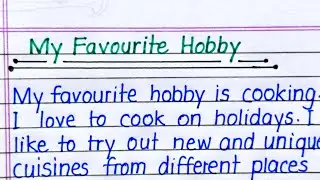 My Favourite Hobby
My favourite hobby is cooking.
I love to cook on holidays. I
like to try out new and unique
cuisines from different places